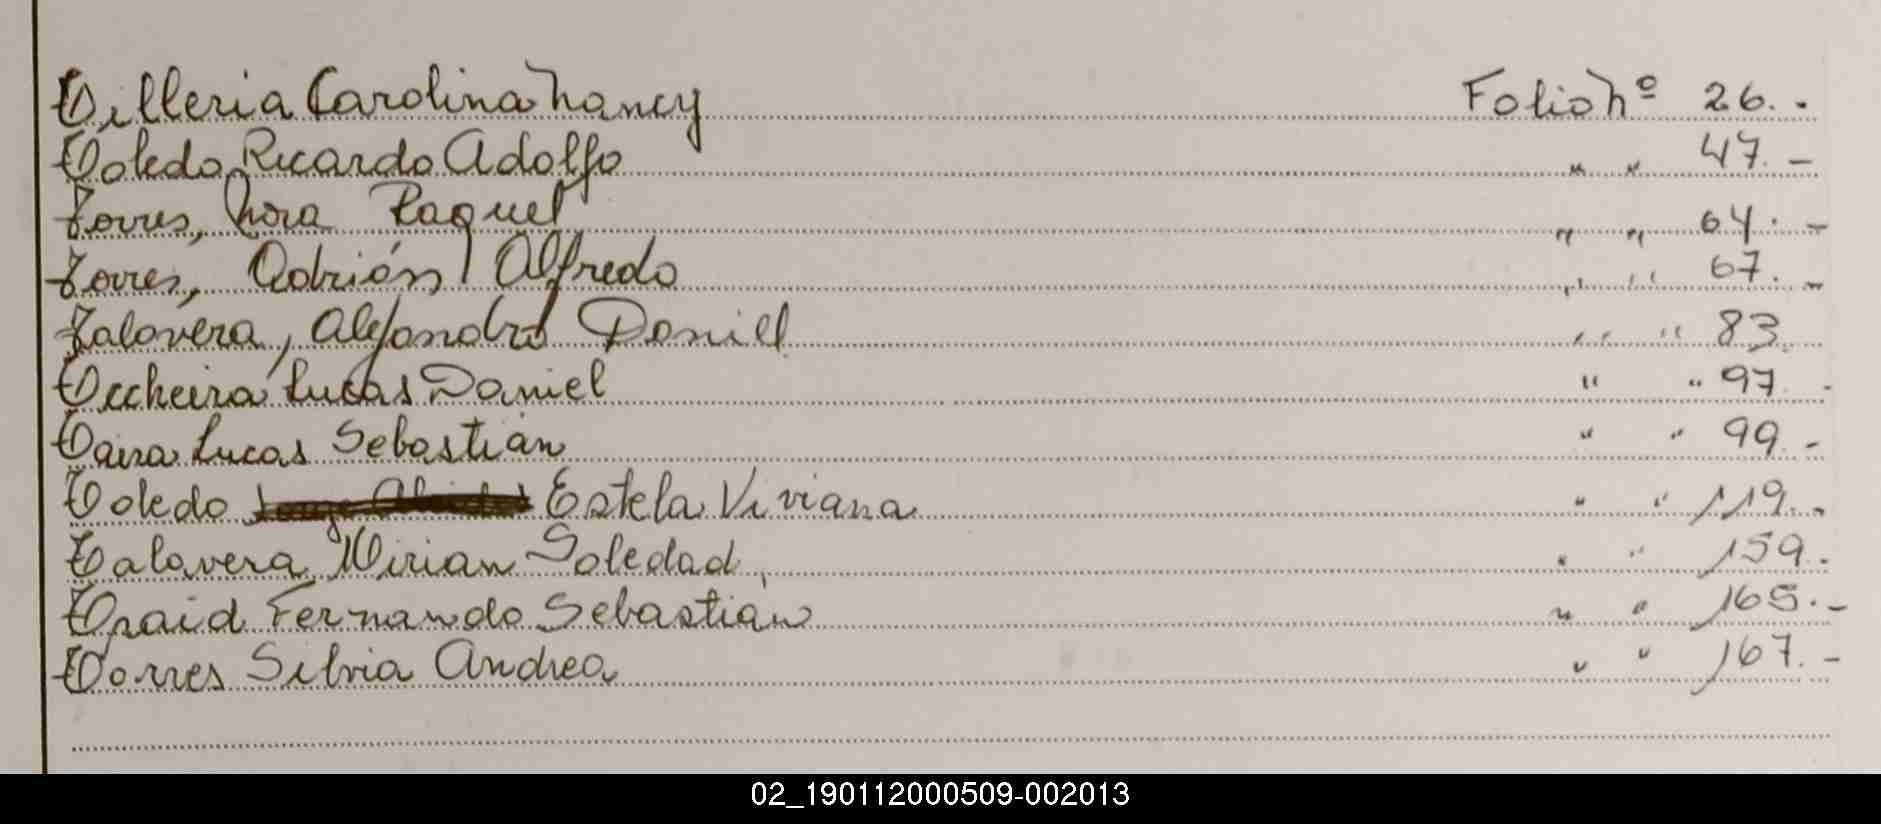 Tilleria Carolina Nancy Folio Nº 26.-
Toledo Ricardo Adolfo " " 47.-
Torres, Nora Raquel " " 64.-
Torres, Adrián Alfredo " " 67.-
Talavera, Alejandro Daniel " " 83.
Teccheira Lucas Daniel " " 97.-
Taira Lucas Sebastián " " 99.-
Toledo Estela Viviana " " 119.-
Talavera Mirian Soledad, " " 159.-
Fernando Sebastián " " 165.-
Torres Silvia Andrea " " 167.-
02_190112000509-002013